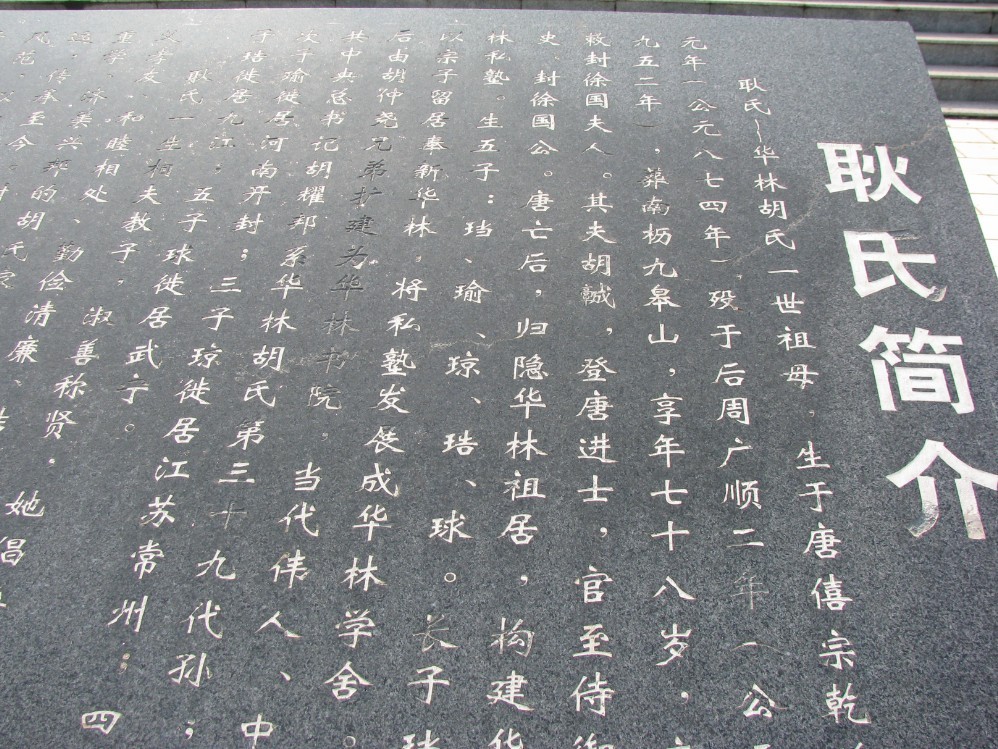 耿氏简介
耿氏—华林胡氏一世祖母，生于唐僖宗乾
元年（公元八七四年），殁于后周广顺二年（公
九五二年），葬南枥九皋山，享年七十八岁，
敕封徐国夫人。其夫胡諴，登唐进士，官至侍御
史、封徐国公。唐亡后，归隐华林祖居，构建华
林私塾。生五子：珰、瑜、琼、琣、球。长子珰
以宗子留居奉新华林，将私塾发展成华林学舍。
后由胡仲尧兄弟扩建为华林书院，当代伟人、中
共中央总书记胡耀邦系华林胡氏第三十九代孙；
次子瑜徙居河南开封；三子琼徙居江苏常州；四
子琣徙居九江；五子球徙居武宁。
耿氏一生相夫教子，淑善称贤。她倡
义孝友、和睦相处、勤俭清廉、
重学、济美兴邦的胡氏家
风范，传承至今